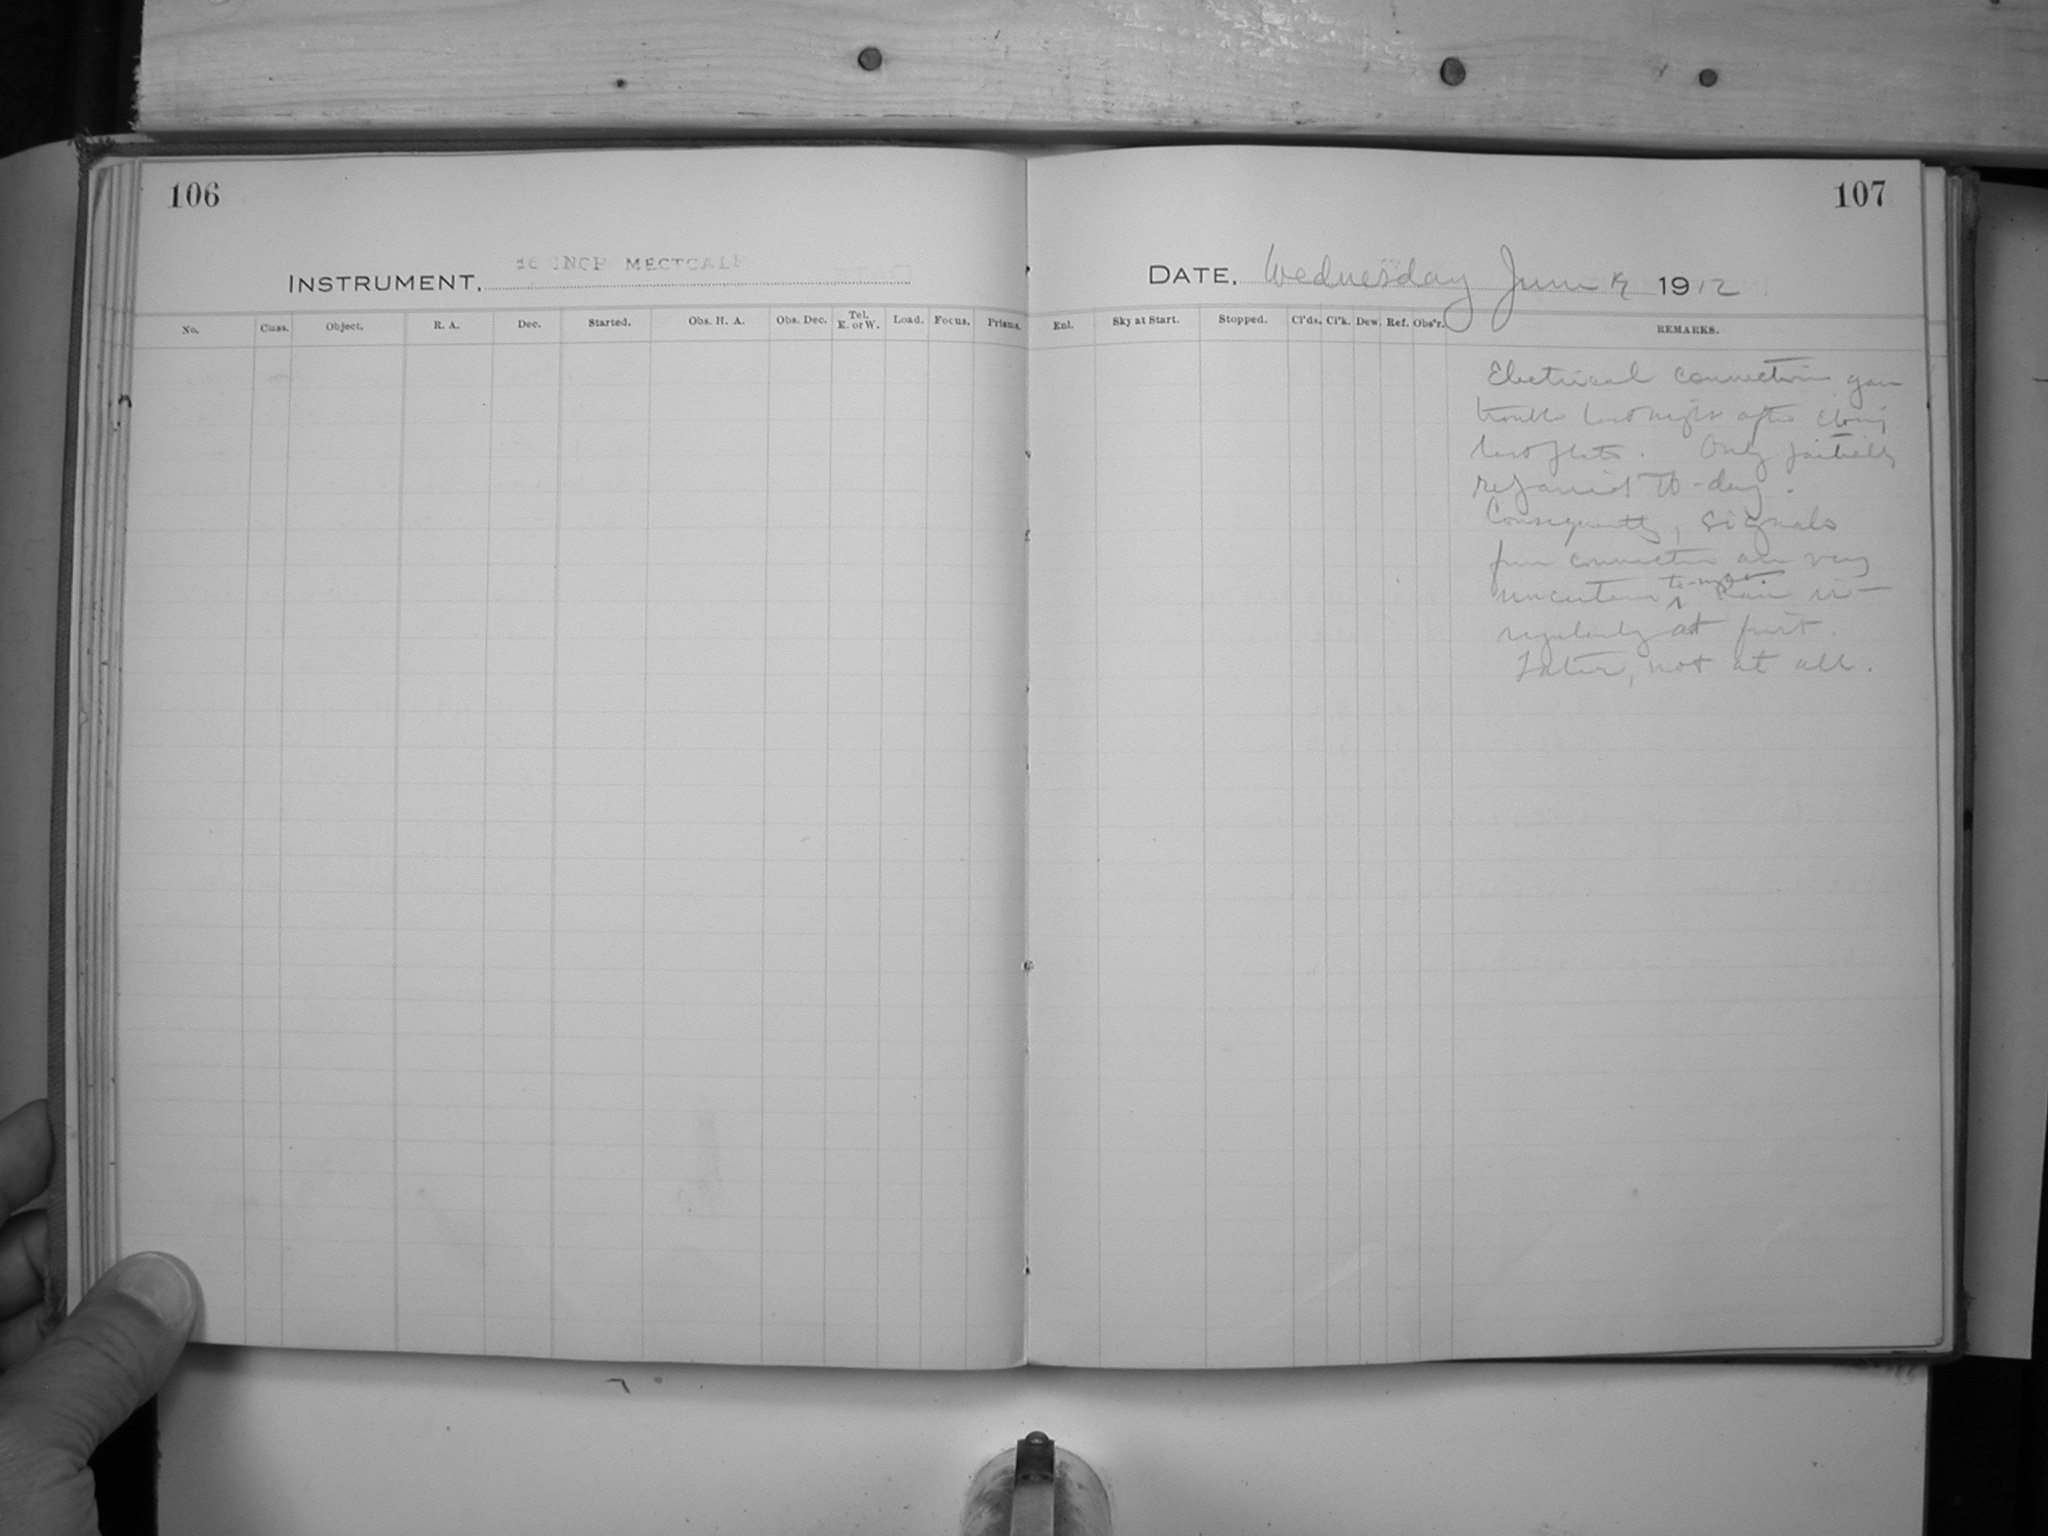 106
107
INSTRUMENT, 16 INCH METCALF
DATE, Wednesday June 1912
No. Class. Object. R. A. Dec. Started. Obs. H. A. Obs. Dec. Tel. E. or W. Load. Focus. Prisms.
Enl. Sky at Start. Stopped. Cl'ds. Cl'k. Dew. Ref. Obs'r. REMARKS.
Electrical connection gave
trouble last night after closing
last plate. Only partially
repaired to-day.
Consequently, signals
from connection are very
uncertain to-night. ir-
regularly at first.
Later, not at all.